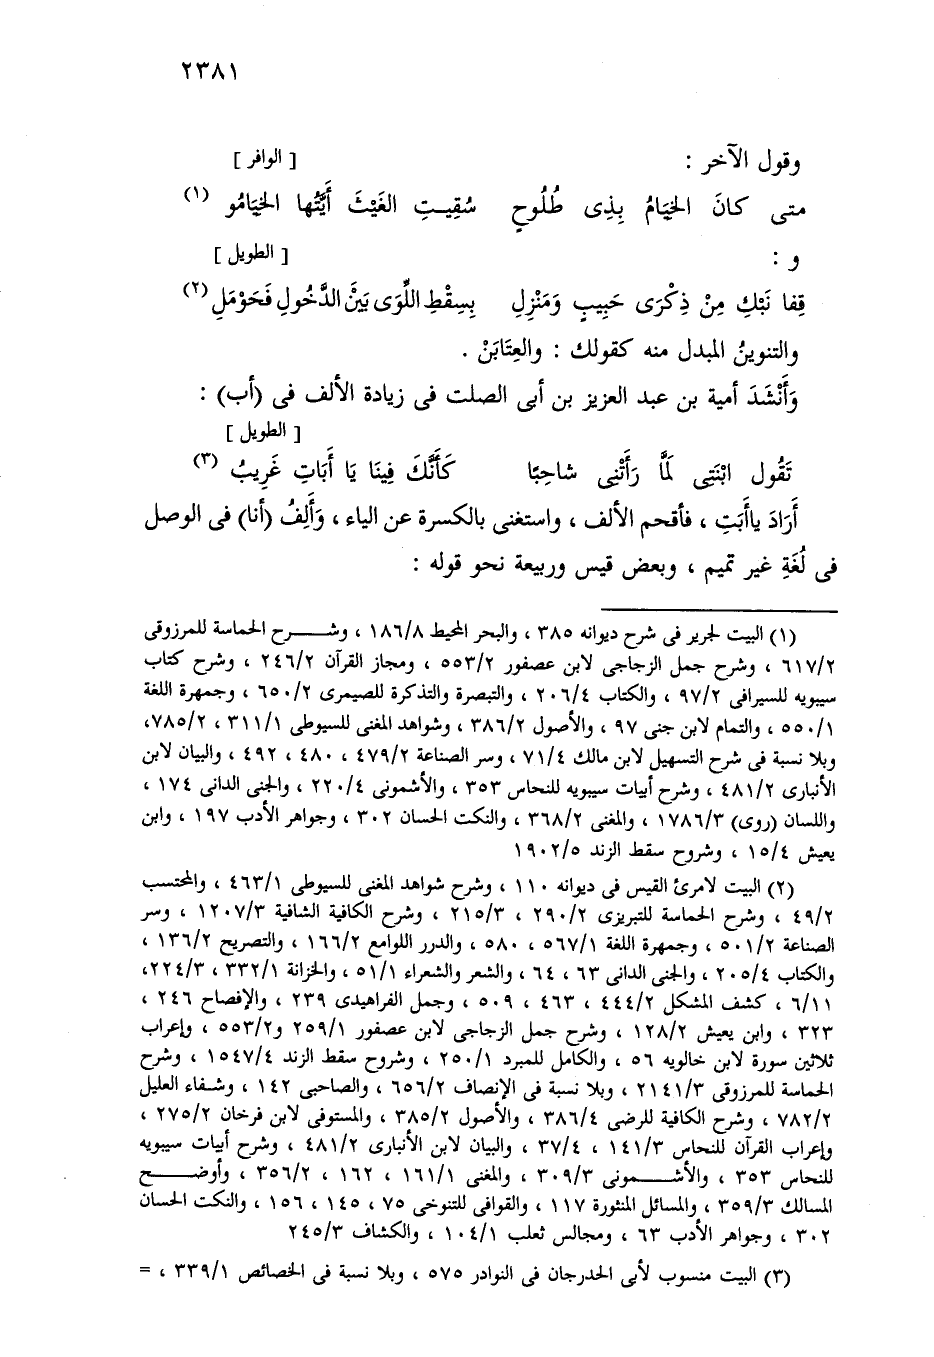 ٢٣٨١
وقول الآخر : [ الوافر ]
متى كانَ الخِيَامُ بِذِى طُلُوحٍ سُقِيتِ الغَيْثَ أَيَّتُها الخِيَامُو (١)
و : [ الطويل ]
قِفا نَبْكِ مِنْ ذِكْرَى حَبِيبٍ وَمَنْزِلِ بِسِقْطِ اللِّوَى بَيْنَ الدَّخُولِ فَحَوْمَلِ (٢)
والتنوينُ المبدل منه كقولك : والعِتَابَنْ .
وَأَنْشَدَ أمية بن عبد العزيز بن أبى الصلت فى زيادة الألف فى (أب) :
[ الطويل ]
تَقُول ابْنَتِى لَمَّا رَأَتْنِى شاحِبًا كَأَنَّكَ فِينَا يَا أَبَاتِ غَرِيبُ (٣)
أَرَادَ ياأَبَتِ ، فأقحم الألف ، واستغنى بالكسرة عن الياء ، وَأَلِفُ (أنا) فى الوصل
فى لُغَةِ غير تميم ، وبعض قيس وربيعة نحو قوله :
(١) البيت لجرير فى شرح ديوانه ٣٨٥ ، والبحر المحيط ١٨٦/٨ ، وشرح الحماسة للمرزوقى
٦١٧/٢ ، وشرح جمل الزجاجى لابن عصفور ٥٥٣/٢ ، ومجاز القرآن ٢٤٦/٢ ، وشرح كتاب
سيبويه للسيرافى ٩٧/٢ ، والكتاب ٢٠٦/٤ ، والتبصرة والتذكرة للصيمرى ٦٥٠/٢ ، وجمهرة اللغة
٥٥٠/١ ، والتمام لابن جنى ٩٧ ، والأصول ٣٨٦/٢ ، وشواهد المغنى للسيوطى ٣١١/١ ، ٧٨٥/٢،
وبلا نسبة فى شرح التسهيل لابن مالك ٧١/٤ ، وسر الصناعة ٤٧٩/٢ ، ٤٨٠ ، ٤٩٢ ، والبيان لابن
الأنبارى ٤٨١/٢ ، وشرح أبيات سيبويه للنحاس ٣٥٣ ، والأشمونى ٢٢٠/٤ ، والجنى الدانى ١٧٤ ،
واللسان (روى) ١٧٨٦/٣ ، والمغنى ٣٦٨/٢ ، والنكت الحسان ٣٠٢ ، وجواهر الأدب ١٩٧ ، وابن
يعيش ١٥/٤ ، وشروح سقط الزند ١٩٠٢/٥
(٢) البيت لامرئ القيس فى ديوانه ١١٠ ، وشرح شواهد المغنى للسيوطى ٤٦٣/١ ، والمحتسب
٤٩/٢ ، وشرح الحماسة للتبريزى ٢٩٠/٢ ، ٢١٥/٣ ، وشرح الكافية الشافية ١٢٠٧/٣ ، وسر
الصناعة ٥٠١/٢ ، وجمهرة اللغة ٥٦٧/١ ، ٥٨٠ ، والدرر اللوامع ١٦٦/٢ ، والتصريح ١٣٦/٢ ،
والكتاب ٢٠٥/٤ ، والجنى الدانى ٦٣ ، ٦٤ ، والشعر والشعراء ٥١/١ ، والخزانة ٣٣٢/١ ، ٢٢٤/٣،
٦/١١ ، كشف المشكل ٤٤٤/٢ ، ٤٦٣ ، ٥٠٩ ، وجمل الفراهيدى ٢٣٩ ، والإفصاح ٢٤٦ ،
٣٢٣ ، وابن يعيش ١٢٨/٢ ، وشرح جمل الزجاجى لابن عصفور ٢٥٩/١ و٥٥٣/٢ ، وإعراب
ثلاثين سورة لابن خالويه ٥٦ ، والكامل للمبرد ٢٥٠/١ ، وشروح سقط الزند ١٥٤٧/٤ ، وشرح
الحماسة للمرزوقى ٢١٤١/٣ ، وبلا نسبة فى الإنصاف ٦٥٦/٢ ، والصاحبى ١٤٢ ، وشفاء العليل
٧٨٢/٢ ، وشرح الكافية للرضى ٣٨٦/٤ ، والأصول ٣٨٥/٢ ، والمستوفى لابن فرخان ٢٧٥/٢ ،
وإعراب القرآن للنحاس ١٤١/٣ ، ٣٧/٤ ، والبيان لابن الأنبارى ٤٨١/٢ ، وشرح أبيات سيبويه
للنحاس ٣٥٣ ، والأشمونى ٣٠٩/٣ ، والمغنى ١٦١/١ ، ١٦٢ ، ٣٥٦/٢ ، وأوضح
المسالك ٣٥٩/٣ ، والمسائل المنثورة ١١٧ ، والقوافى للتنوخى ٧٥ ، ١٤٥ ، ١٥٦ ، والنكت الحسان
٣٠٢ ، وجواهر الأدب ٦٣ ، ومجالس ثعلب ١٠٤/١ ، والكشاف ٢٤٥/٣
(٣) البيت منسوب لأبى الحدرجان فى النوادر ٥٧٥ ، وبلا نسبة فى الخصائص ٣٣٩/١ ، =